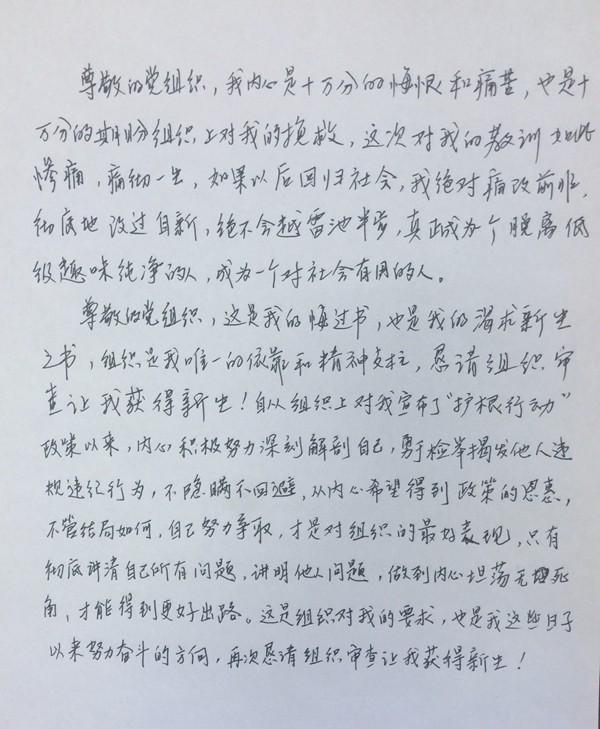 尊敬的党组织，我内心是十万分的悔恨和痛苦，也是十
万分的期盼组织上对我的挽救，这次对我的教训如此
惨痛，痛彻一生，如果以后回归社会，我绝对痛改前非，
彻底地改过自新，绝不会越雷池半步，真正成为个脱离低
级趣味纯净的人，成为一个对社会有用的人。
尊敬的党组织，这是我的悔过书，也是我的渴求新生
之书，组织是我唯一的依靠和精神支柱，恳请组织审
查让我获得新生！自从组织上对我宣布了“护根行动”
政策以来，内心积极努力深刻解剖自己，勇于检举揭发他人违
规违纪行为，不隐瞒不回避，从内心希望得到政策的恩惠，
不管结局如何，自己努力争取，才是对组织的最好表现，只有
彻底讲清自己所有问题，讲明他人问题，做到内心坦荡无死
角，才能得到更好出路。这是组织对我的要求，也是我这些日子
以来努力奋斗的方向，再次恳请组织审查让我获得新生！